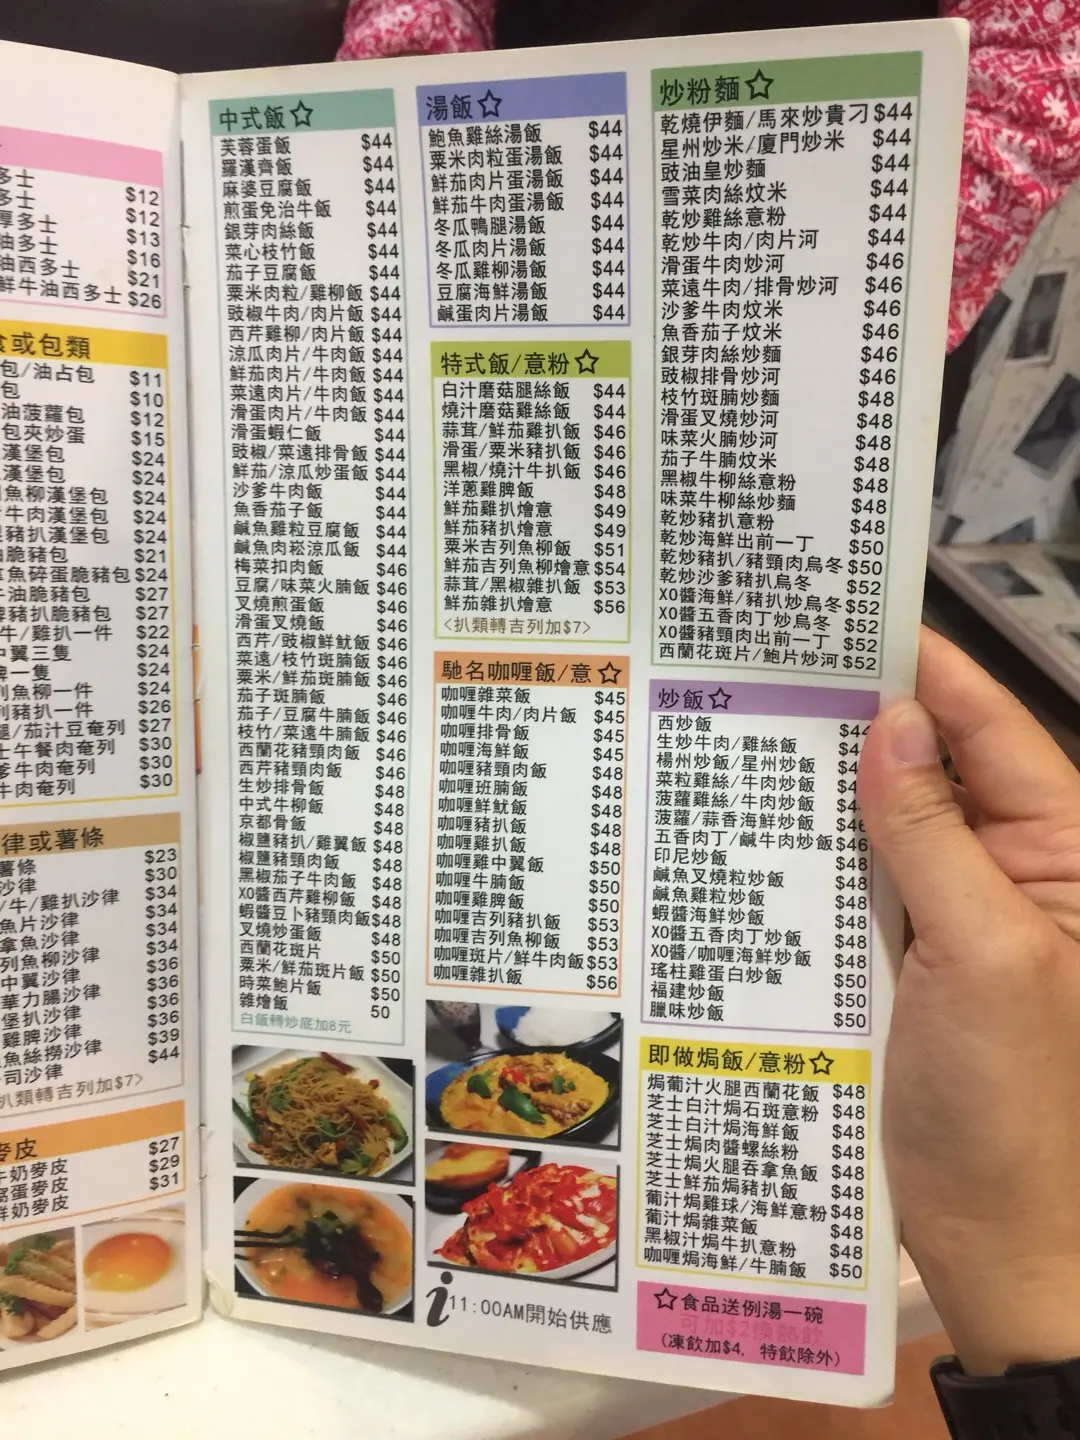 多士 $12
多士 $12
厚多士 $13
油多士 $16
油西多士 $21
鮮牛油西多士 $26
或包類
包/油占包 $11
包 $10
油菠蘿包 $12
包夾炒蛋 $15
漢堡包 $24
漢堡包 $24
魚柳漢堡包 $24
牛肉漢堡包 $24
豬扒漢堡包 $24
脆豬包 $21
魚碎蛋脆豬包 $24
油脆豬包 $27
豬扒脆豬包 $27
牛/雞扒一件 $22
中翼三隻 $24
一隻 $24
列魚柳一件 $24
列豬扒一件 $26
腿/茄汁豆奄列 $27
士午餐肉奄列 $30
爹牛肉奄列 $30
牛肉奄列 $30
律或薯條
薯條 $23
沙律 $30
/牛/雞扒沙律 $34
魚片沙律 $34
拿魚沙律 $34
列魚柳沙律 $34
中翼沙律 $36
華力腸沙律 $36
堡扒沙律 $36
雞髀沙律 $36
魚絲撈沙律 $39
司沙律 $44
扒類轉吉列加$7>
麥皮
牛奶麥皮 $27
窩蛋麥皮 $29
鮮奶麥皮 $31
中式飯☆
芙蓉蛋飯 $44
羅漢齊飯 $44
麻婆豆腐飯 $44
煎蛋免治牛飯 $44
銀芽肉絲飯 $44
菜心枝竹飯 $44
茄子豆腐飯 $44
粟米肉粒/雞柳飯 $44
豉椒牛肉/肉片飯 $44
西芹雞柳/肉片飯 $44
涼瓜肉片/牛肉飯 $44
鮮茄肉片/牛肉飯 $44
菜遠肉片/牛肉飯 $44
滑蛋肉片/牛肉飯 $44
滑蛋蝦仁飯 $44
豉椒/菜遠排骨飯 $44
鮮茄/涼瓜炒蛋飯 $44
沙爹牛肉飯 $44
魚香茄子飯 $44
鹹魚雞粒豆腐飯 $44
鹹魚肉崧涼瓜飯 $44
梅菜扣肉飯 $46
豆腐/味菜火腩飯 $46
叉燒煎蛋飯 $46
滑蛋叉燒飯 $46
西芹/豉椒鮮魷飯 $46
菜遠/枝竹斑腩飯 $46
粟米/鮮茄斑腩飯 $46
茄子斑腩飯 $46
茄子/豆腐牛腩飯 $46
枝竹/菜遠牛腩飯 $46
西蘭花豬頸肉飯 $46
西芹豬頸肉飯 $46
生炒排骨飯 $48
中式牛柳飯 $48
京都骨飯 $48
椒鹽豬扒/雞翼飯 $48
椒鹽豬頸肉飯 $48
黑椒茄子牛肉飯 $48
XO醬西芹雞柳飯 $48
蝦醬豆卜豬頸肉飯 $48
叉燒炒蛋飯 $48
西蘭花斑片 $50
粟米/鮮茄斑片飯 $50
時菜鮑片飯 $50
雜燴飯 50
白飯轉炒底加8元
湯飯☆
鮑魚雞絲湯飯 $44
粟米肉粒蛋湯飯 $44
鮮茄肉片蛋湯飯 $44
鮮茄牛肉蛋湯飯 $44
冬瓜鴨腿湯飯 $44
冬瓜肉片湯飯 $44
冬瓜雞柳湯飯 $44
豆腐海鮮湯飯 $44
鹹蛋肉片湯飯 $44
特式飯/意粉☆
白汁磨菇腿絲飯 $44
燒汁磨菇雞絲飯 $44
蒜茸/鮮茄雞扒飯 $46
滑蛋/粟米豬扒飯 $46
黑椒/燒汁牛扒飯 $46
洋蔥雞脾飯 $48
鮮茄雞扒燴意 $49
鮮茄豬扒燴意 $49
粟米吉列魚柳飯 $51
鮮茄吉列魚柳燴意 $54
蒜茸/黑椒雜扒飯 $53
鮮茄雜扒燴意 $56
<扒類轉吉列加$7>
馳名咖喱飯/意☆
咖喱雜菜飯 $45
咖喱牛肉/肉片飯 $45
咖喱排骨飯 $45
咖喱海鮮飯 $45
咖喱豬頸肉飯 $48
咖喱班腩飯 $48
咖喱鮮魷飯 $48
咖喱豬扒飯 $48
咖喱雞扒飯 $48
咖喱雞中翼飯 $50
咖喱牛腩飯 $50
咖喱雞脾飯 $50
咖喱吉列豬扒飯 $53
咖喱吉列魚柳飯 $53
咖喱斑片/鮮牛肉飯 $53
咖喱雜扒飯 $56
i 11:00AM開始供應
炒粉麵☆
乾燒伊麵/馬來炒貴刁 $44
星州炒米/廈門炒米 $44
豉油皇炒麵 $44
雪菜肉絲炆米 $44
乾炒雞絲意粉 $44
乾炒牛肉/肉片河 $44
滑蛋牛肉炒河 $46
菜遠牛肉/排骨炒河 $46
沙爹牛肉炆米 $46
魚香茄子炆米 $46
銀芽肉絲炒麵 $46
豉椒排骨炒河 $46
枝竹斑腩炒麵 $48
滑蛋叉燒炒河 $48
味菜火腩炒河 $48
茄子牛腩炆米 $48
黑椒牛柳絲意粉 $48
味菜牛柳絲炒麵 $48
乾炒豬扒意粉 $48
乾炒海鮮出前一丁 $50
乾炒豬扒/豬頸肉烏冬 $50
乾炒沙爹豬扒烏冬 $52
XO醬海鮮/豬扒炒烏冬 $52
XO醬五香肉丁炒烏冬 $52
XO醬豬頸肉出前一丁 $52
西蘭花斑片/鮑片炒河 $52
炒飯☆
西炒飯 $44
生炒牛肉/雞絲飯
楊州炒飯/星州炒飯
菜粒雞絲/牛肉炒飯
菠蘿雞絲/牛肉炒飯
菠蘿/蒜香海鮮炒飯 $46
五香肉丁/鹹牛肉炒飯 $46
印尼炒飯 $48
鹹魚叉燒粒炒飯 $48
鹹魚雞粒炒飯 $48
蝦醬海鮮炒飯 $48
XO醬五香肉丁炒飯 $48
XO醬/咖喱海鮮炒飯 $48
瑤柱雞蛋白炒飯 $50
福建炒飯 $50
臘味炒飯 $50
即做焗飯/意粉☆
焗葡汁火腿西蘭花飯 $48
芝士白汁焗石斑意粉 $48
芝士白汁焗海鮮飯 $48
芝士焗肉醬螺絲粉 $48
芝士焗火腿吞拿魚飯 $48
芝士鮮茄焗豬扒飯 $48
葡汁焗雞球/海鮮意粉 $48
葡汁焗雜菜飯 $48
黑椒汁焗牛扒意粉 $48
咖喱焗海鮮/牛腩飯 $50
☆食品送例湯一碗
可加$2換熱飲
(凍飲加$4, 特飲除外)